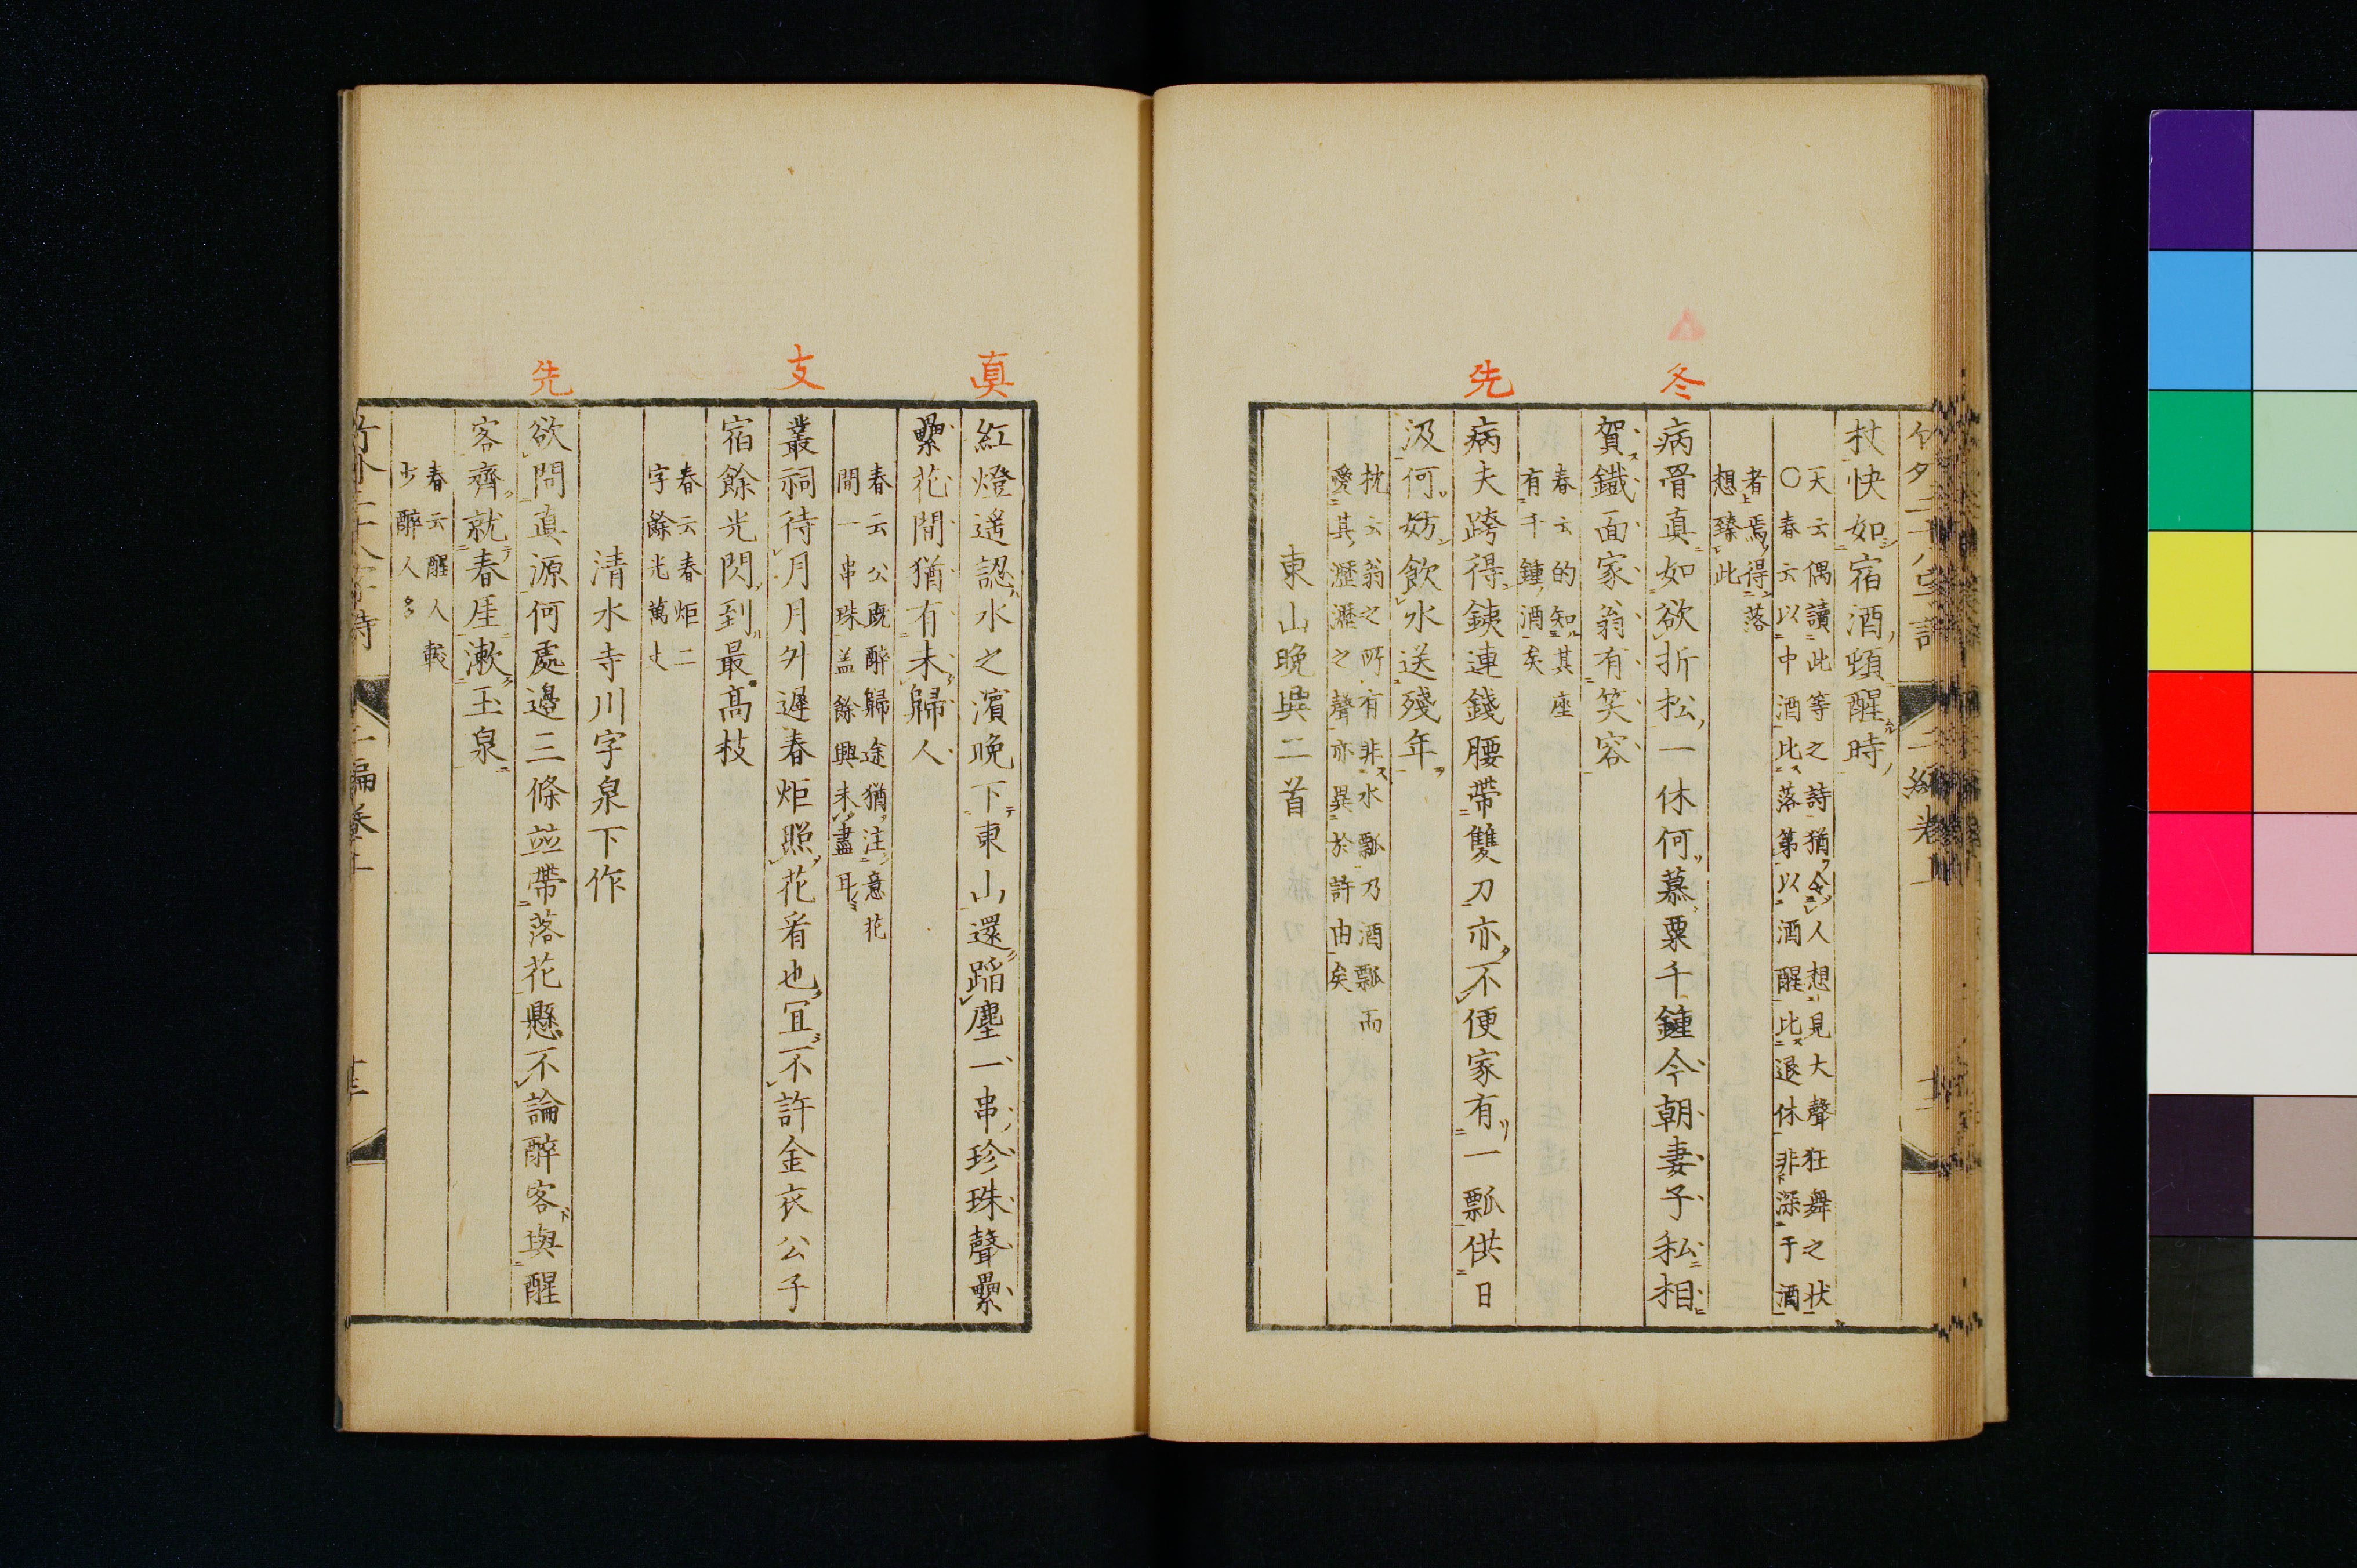 杖快如宿酒頓醒時
天云偶讀此等之詩猶令人想見大聲狂舞之状
○春云以中酒比落第以酒醒比退休非深于酒
者焉得落
想臻此
冬
病骨真如欲折松一休何慕粟千鍾今朝妻子私相
賀鐵面家翁有笑容
春云的知其座
有千鍾酒矣
先
病夫跨得銕連錢腰帶雙刀亦不便家有一瓢供日
汲何妨飲水送殘年
枕云翁之所有非水瓢乃酒瓢而
愛其瀝瀝之聲亦異於許由矣
東山晩興二首
真
紅燈遥認水之濱晩下東山還蹈塵一串珍珠聲纍
纍花間猶有未歸人
春云公既醉歸途猶注意花
間一串珠盖餘興未盡耳
支
叢祠待月月外遲春炬照花看也宜不許金衣公子
宿餘光閃到最髙枝
春云春炬二
字餘光萬丈
清水寺川字泉下作
先
欲問真源何處邊三條並帶落花懸不論醉客與醒
客齊就春厓漱玉泉
春云醒人較
少醉人多